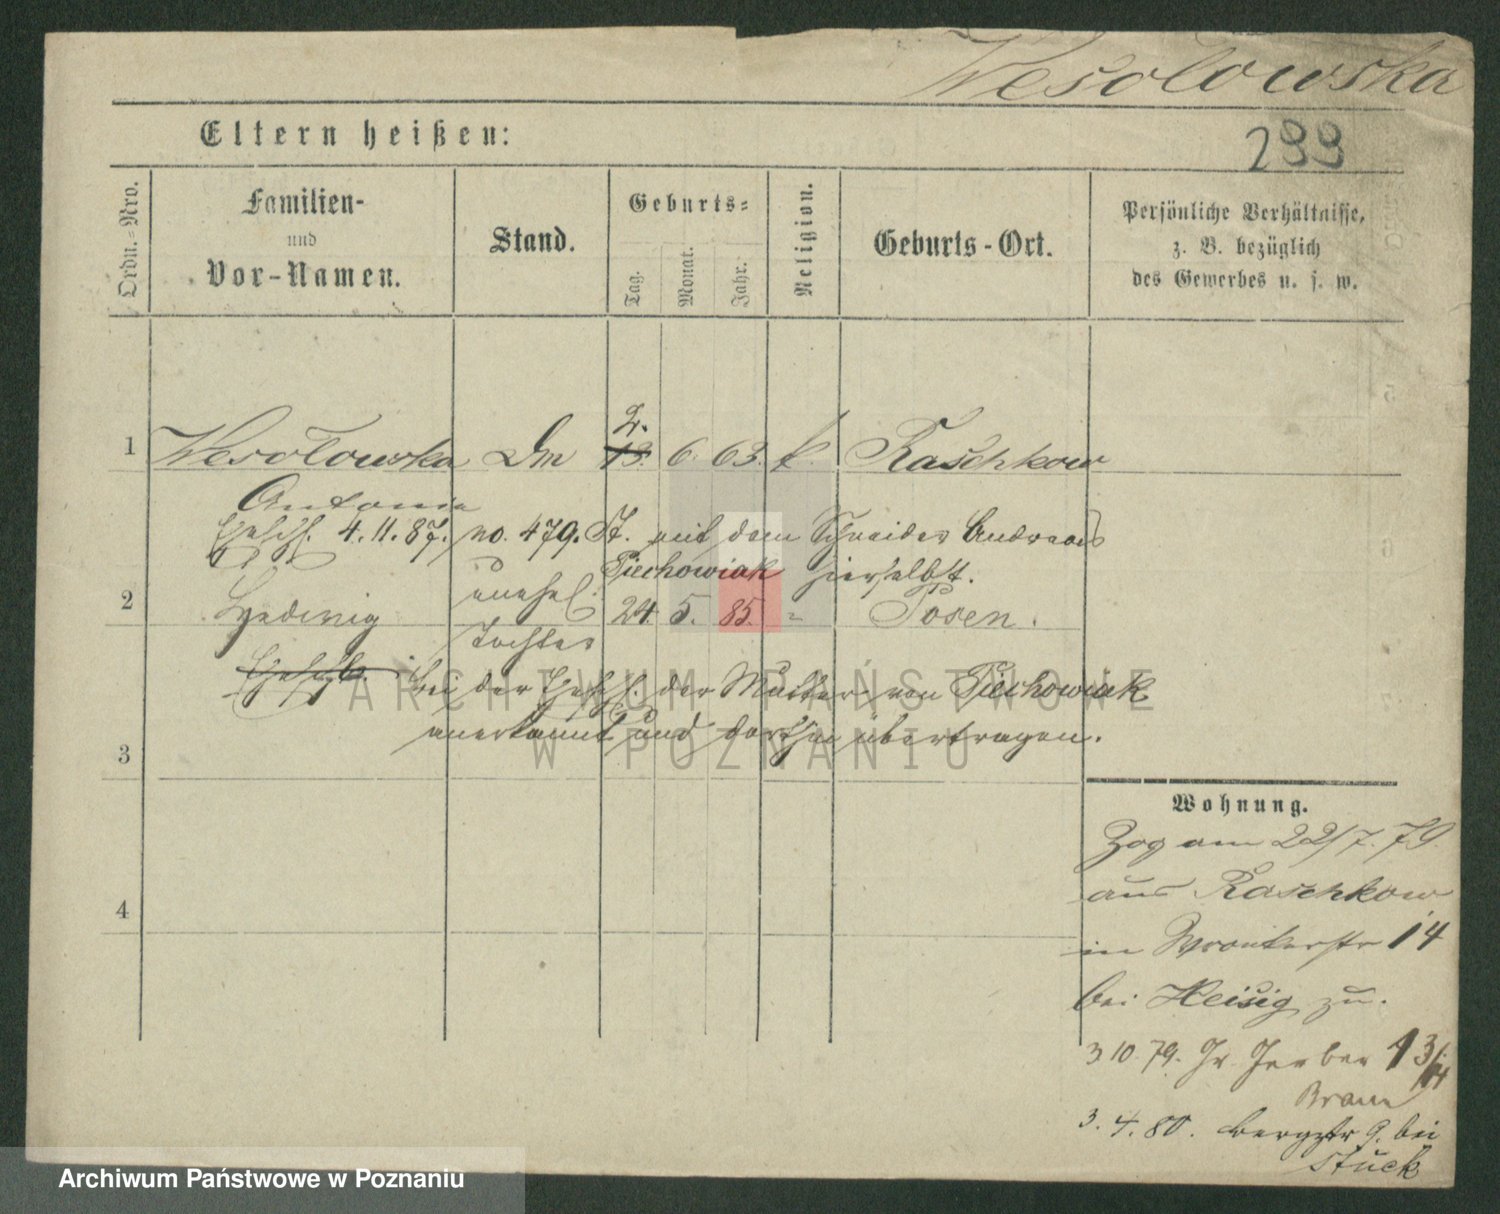 Wesołowska
Eltern heißen:
299
Ordn.=Nro.
Familien-
und
Vor-Namen.
Stand.
Geburts=
Tag.
Monat.
Jahr.
Religion.
Geburts-Ort.
Persönliche Verhältnisse,
z. B. bezüglich
des Gewerbes u. s. w.
2.
1 Wesołowska Dm 13. 6. 63. k. Raschkow
Antonie
Ehesch. 4. 11. 87. no. 479. St. mit dem Schneider Andreas
Piechowiak hierselbst.
unehel.
2 Hedwig 24. 5. 85. " Posen.
Tochter
bei der Ehesch. der Mutter von Piechowiak
anerkannt und dorthin übertragen.
3
4
Wohnung.
Zog am 22/7. 79.
aus Raschkow
in Wronkerstr 14
bei Heisig zu.
3 10. 79. Gr. Gerber 13/14
Braun
3. 4. 80. Bergstr 9. bei
Stuck
ARCHIWUM PAŃSTWOWE
W POZNANIU
Archiwum Państwowe w Poznaniu